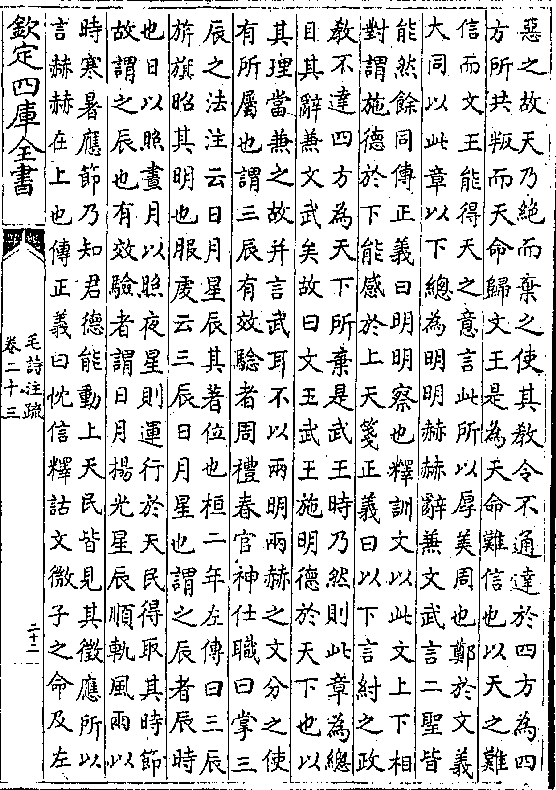 惡之故天乃絶而棄之使其教令不通達於四方為四
方所共叛而天命歸文王是為天命難信也以天之難
信而文王能得天之意言此所以厚美周也鄭於文義
大同以此章以下總為明明赫赫辭兼文武言二聖皆
能然餘同傳正義曰明明察也釋訓文以此文上下相
對謂施德於下能感於上天箋正義曰以下言紂之政
教不達四方為天下所棄是武王時乃然則此章為總
目其辭兼文武矣故曰文王武王施明德於天下也以
其理當兼之故并言武耳不以兩明兩赫之文分之使
有所屬也謂三辰有效驗者周禮春官神仕職曰掌三
辰之法注云日月星辰其著位也桓二年左傳曰三辰
旂旗昭其明也服虔云三辰日月星也謂之辰者辰時
也日以照晝月以照夜星則運行於天民得取其時節
故謂之辰也有效驗者謂日月揚光星辰順軌風雨以
時寒暑應節乃知君德能動上天民皆見其徵應所以
言赫赫在上也傳正義曰忱信釋詁文微子之命及左
欽定四庫全書
毛詩注疏
卷二十三
二十二